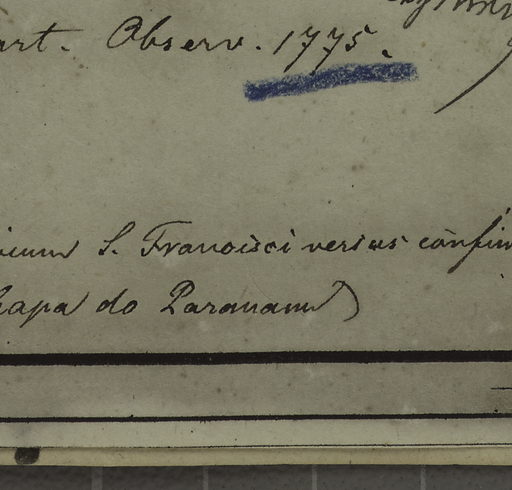 art. Observ. 1775.
icum S. Francisci versus confin
hapa do Paranam)